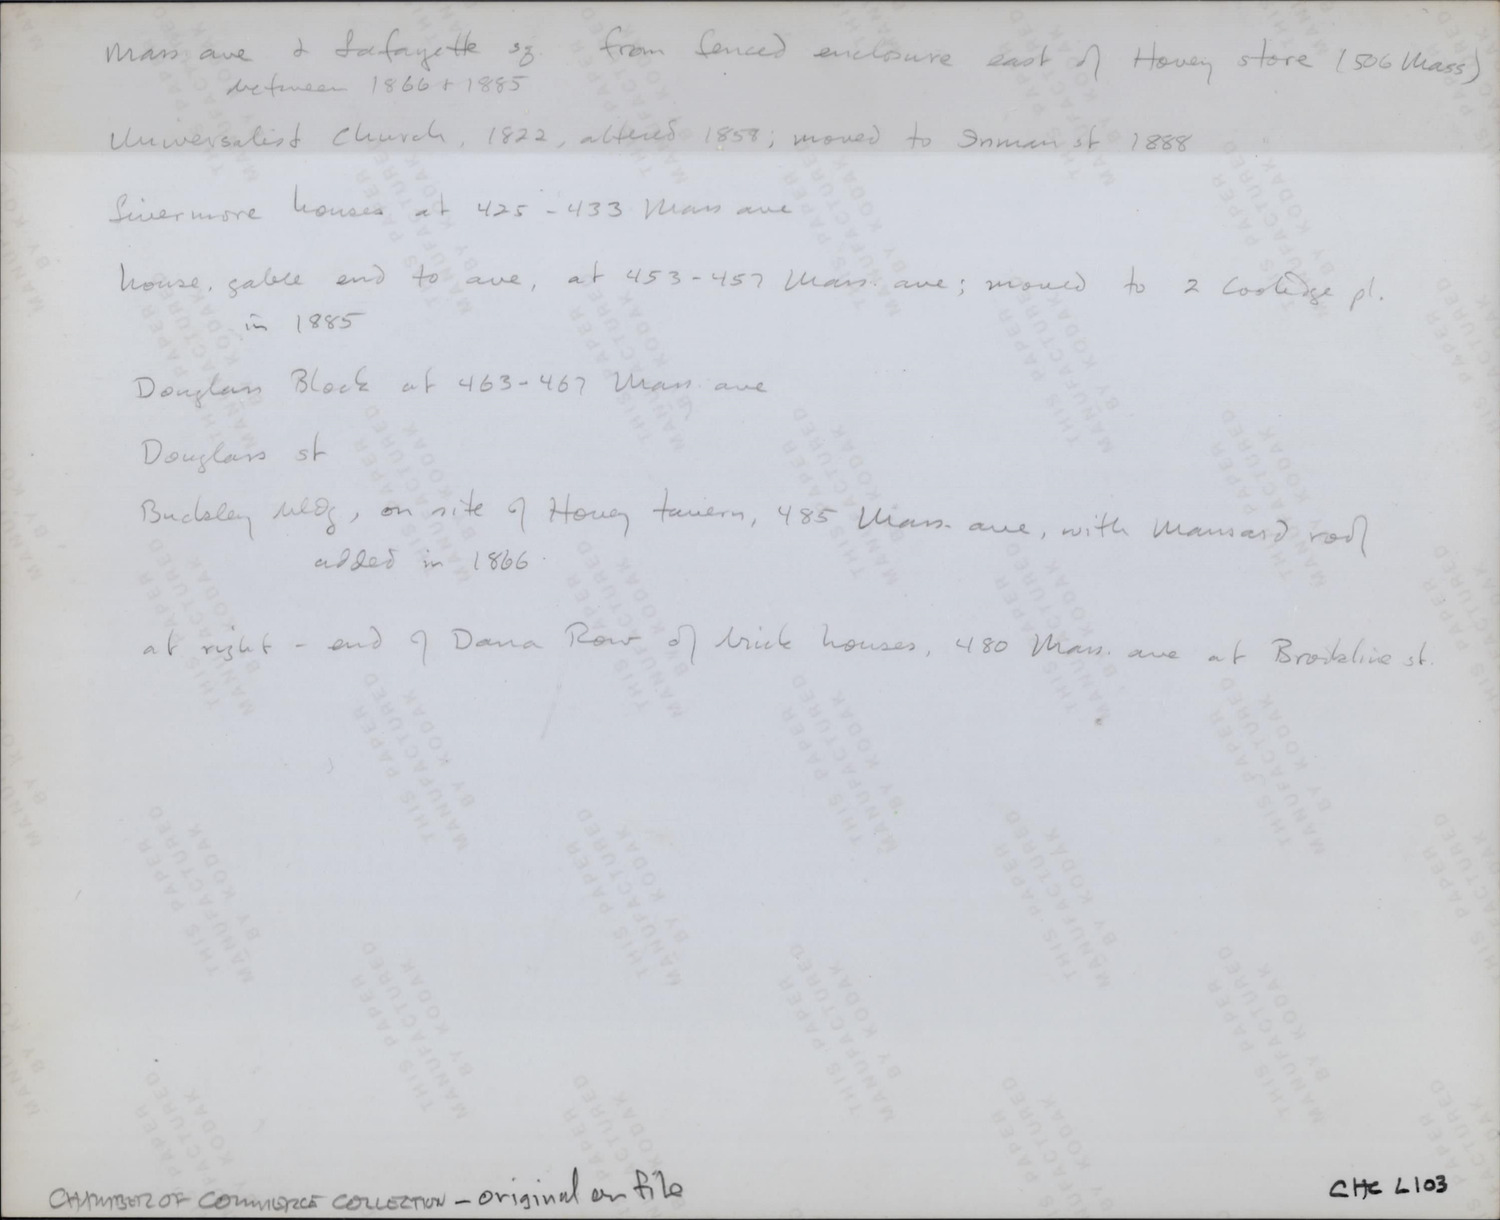 Mass ave & Lafayette sq from fenced enclosure east of Hovey store (506 Mass)
between 1866 + 1885
Universalist Church, 1822, altered 1858; moved to Inman st 1888
Livermore houses at 425-433 Mass ave
house, gable end to ave, at 453-457 Mass. ave; moved to 2 Coolidge pl.
in 1885
Douglass Block at 463-467 Mass. ave
Douglass st
Buckley bldg, on site of Hovey tavern, 485 Mass. ave, with Mansard roof
added in 1866.
at right - end of Dana Row of brick houses, 480 Mass. ave at Brookline st.
CHAMBER OF COMMERCE COLLECTION - original on file
CHC L103
THIS PAPER
MANUFACTURED
BY KODAK